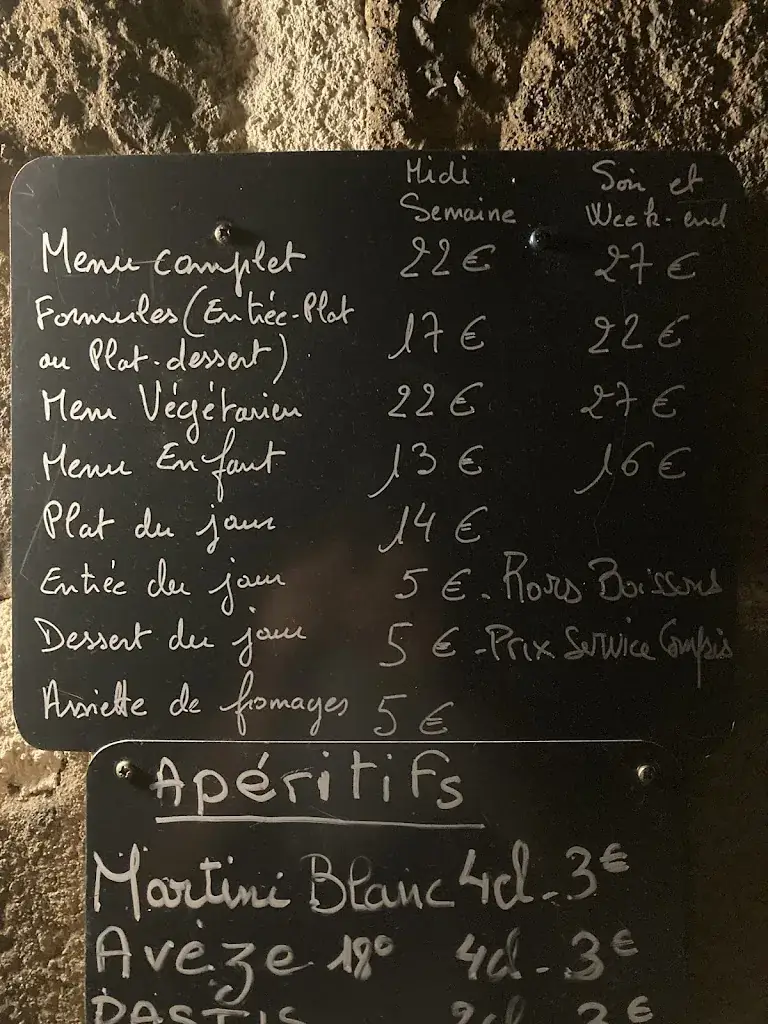 Midi Soir et
Semaine Week-end
Menu complet 22 € 27 €
Formules (Entrée-Plat
ou Plat-dessert) 17 € 22 €
Menu Végétarien 22 € 27 €
Menu Enfant 13 € 16 €
Plat du jour 14 €
Entrée du jour 5 € - Hors Boissons
Dessert du jour 5 € - Prix Service Compris
Assiette de fromages 5 €
Apéritifs
Martini Blanc 4cl - 3€
Avèze 18° 4cl - 3€
PASTIS 2cl 3€